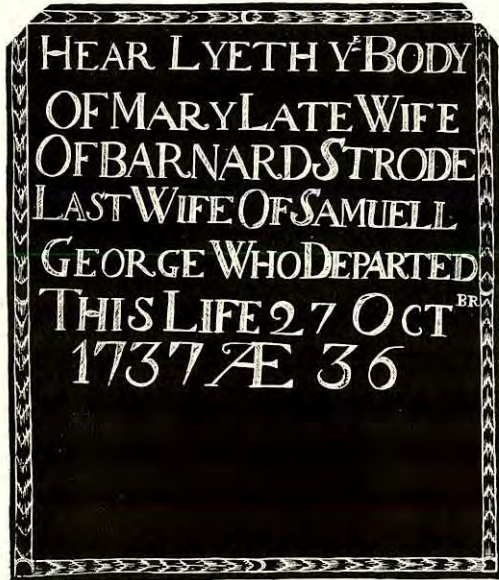 HEAR LYETH Yᴱ BODY
OF MARY LATE WIFE
OF BARNARD STRODE
LAST WIFE OF SAMUELL
GEORGE WHO DEPARTED
THIS LIFE 27 OCTᴮᴿ
1737 Æ 36